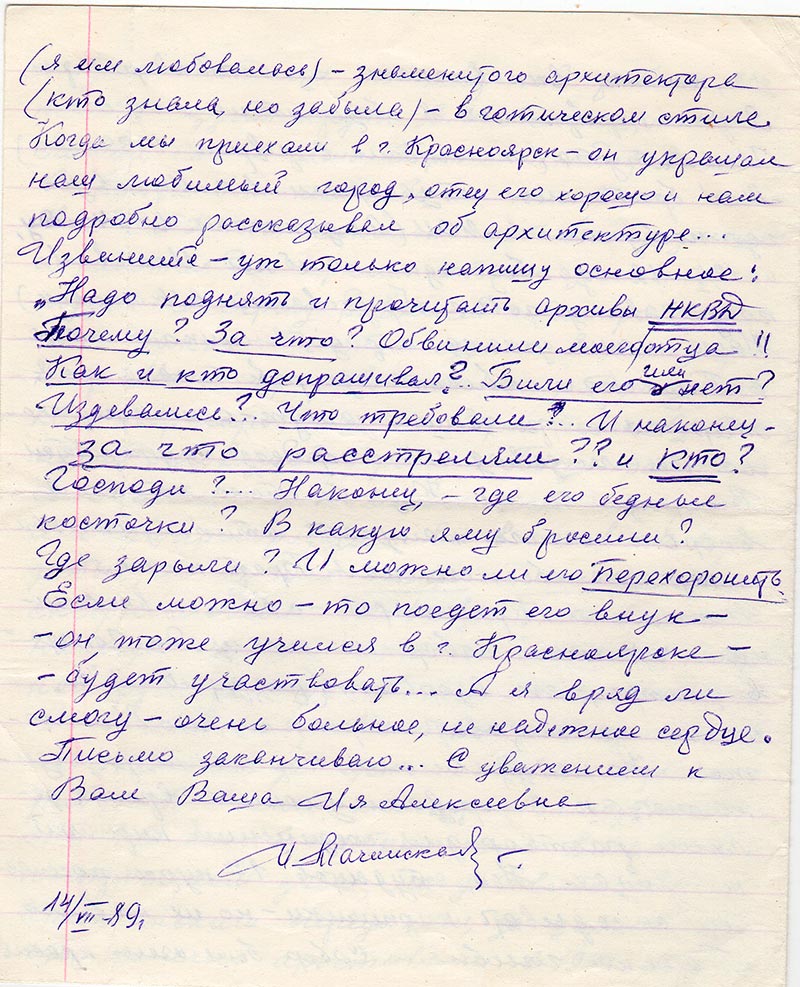 (я им любовалась) – знаменитого архитектора
(кто знала, но забыла) – в готическом стиле.
Когда мы приехали в г. Красноярск – он украшал
наш любимый город, отец его хорошо и нам
подробно рассказывал об архитектуре...
Извините – уж только напишу основное:
„Надо поднять и прочитать архивы НКВД
Почему? За что? Обвинили моего отца!!
Как и кто допрашивал?.. Били его или нет?
Издевались?.. Что требовали?.. И наконец –
за что расстреляли?? и кто?
Господи?... Наконец, – где его бедные
косточки? В какую яму бросили?
Где зарыли? И можно ли его перехоронить.
Если можно – то поедет его внук –
– он тоже учился в г. Красноярске –
– будет участвовать... А я вряд ли
смогу – очень больное, не надежное сердце.
Письмо заканчиваю... С уважением к
Вам Ваша Ия Алексеевна
14/VII-89.